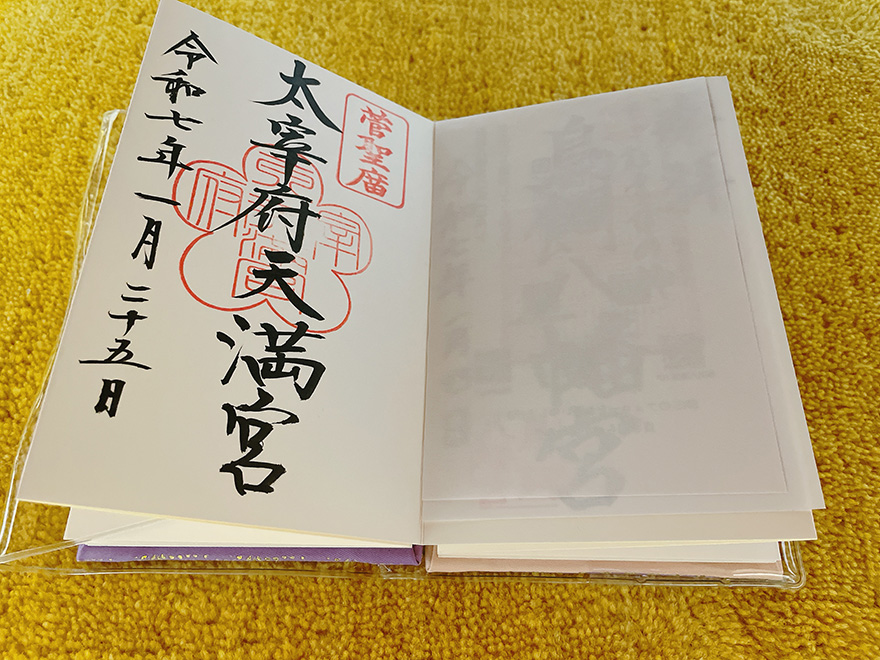 菅聖廟
太宰府天満宮
令和七年一月二十五日